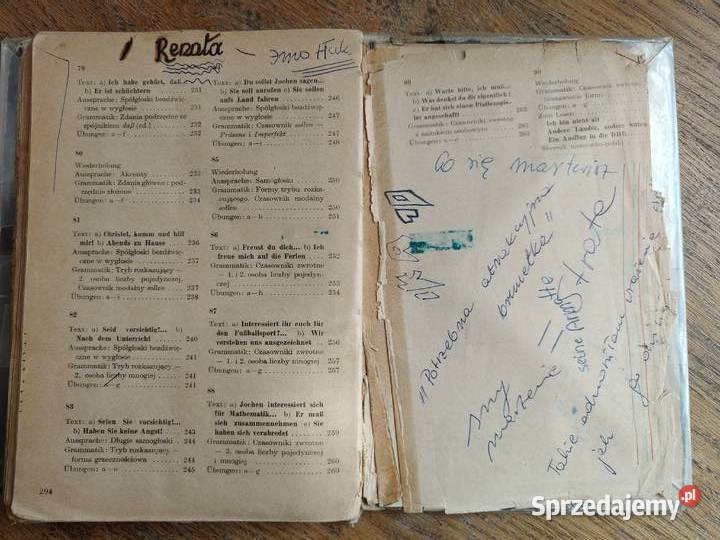 Renata
79
Text: a) Ich habe gehört, daß...
b) Er ist schüchtern 231
Aussprache: Spółgłoski bezdźwięczne w wygłosie 231
Grammatik: Zdania podrzędne ze spójnikiem daß (cd.) 232
Übungen: a—f 232
80
Wiederholung
Aussprache: Akcenty 233
Grammatik: Zdania główne i podrzędnie złożone 233
Übungen: a—f 234
81
Text: a) Christel, komm und hilf
mir! b) Abends zu Hause 236
Aussprache: Spółgłoski bezdźwięczne w wygłosie 237
Grammatik: Tryb rozkazujący —
2. osoba liczby pojedynczej.
Czasownik modalny sollen 237
Übungen: a—i 238
82
Text: a) Seid vorsichtig!... b)
Nach dem Unterricht 240
Aussprache: Spółgłoski bezdźwięczne w wygłosie 241
Grammatik: Tryb rozkazujący —
2. osoba liczby mnogiej 241
Übungen: a—g 241
83
Text: a) Seien Sie vorsichtig!...
b) Haben Sie keine Angst! 243
Aussprache: Długie samogłoski 244
Grammatik: Tryb rozkazujący —
forma grzecznościowa 244
Übungen: a—e 245
294
84
Text: a) Du sollst Jochen sagen...
b) Sie soll anrufen c) Sie sollen
aufs Land fahren 246
Aussprache: Spółgłoski bezdźwięczne w wygłosie 247
Grammatik: Czasownik sollen —
Präsens i Imperfekt 247
Übungen: a—h 248
85
Wiederholung
Aussprache: Samogłoski 250
Grammatik: Formy trybu rozkazującego. Czasownik modalny
sollen 250
Übungen: a—h 251
86
Text: a) Freust du dich... b) Ich
freue mich auf die Ferien 252
Grammatik: Czasowniki zwrotne
— 1. i 2. osoba liczby pojedynczej 253
Übungen: a—h 254
87
Text: a) Interessiert ihr euch für
den Fußballsport?... b) Wir
verstehen uns ausgezeichnet 256
Grammatik: Czasowniki zwrotne
— 1. i 2. osoba liczby mnogiej 257
Übungen: a—g 257
88
Text: a) Jochen interessiert sich
für Mathematik... b) Er muß
sich zusammennehmen c) Sie
haben sich verabredet 259
Grammatik: Czasowniki zwrotne
— 3. osoba liczby pojedynczej
i mnogiej 260
Übungen: a—g 260
Text: a) Warte bitte, ich muß...
b) Was denkst du dir eigentlich!
90
Wiederholung
Ich bin nicht alt
Andere Länder, andere Sitten
Ein Ausflug in die DDR
Co się martwisz
"Potrzebna atrakcyjna
brunetka"
Sny
marzenie
Takie odmawiam wrażenie
Sprzedajemy.pl